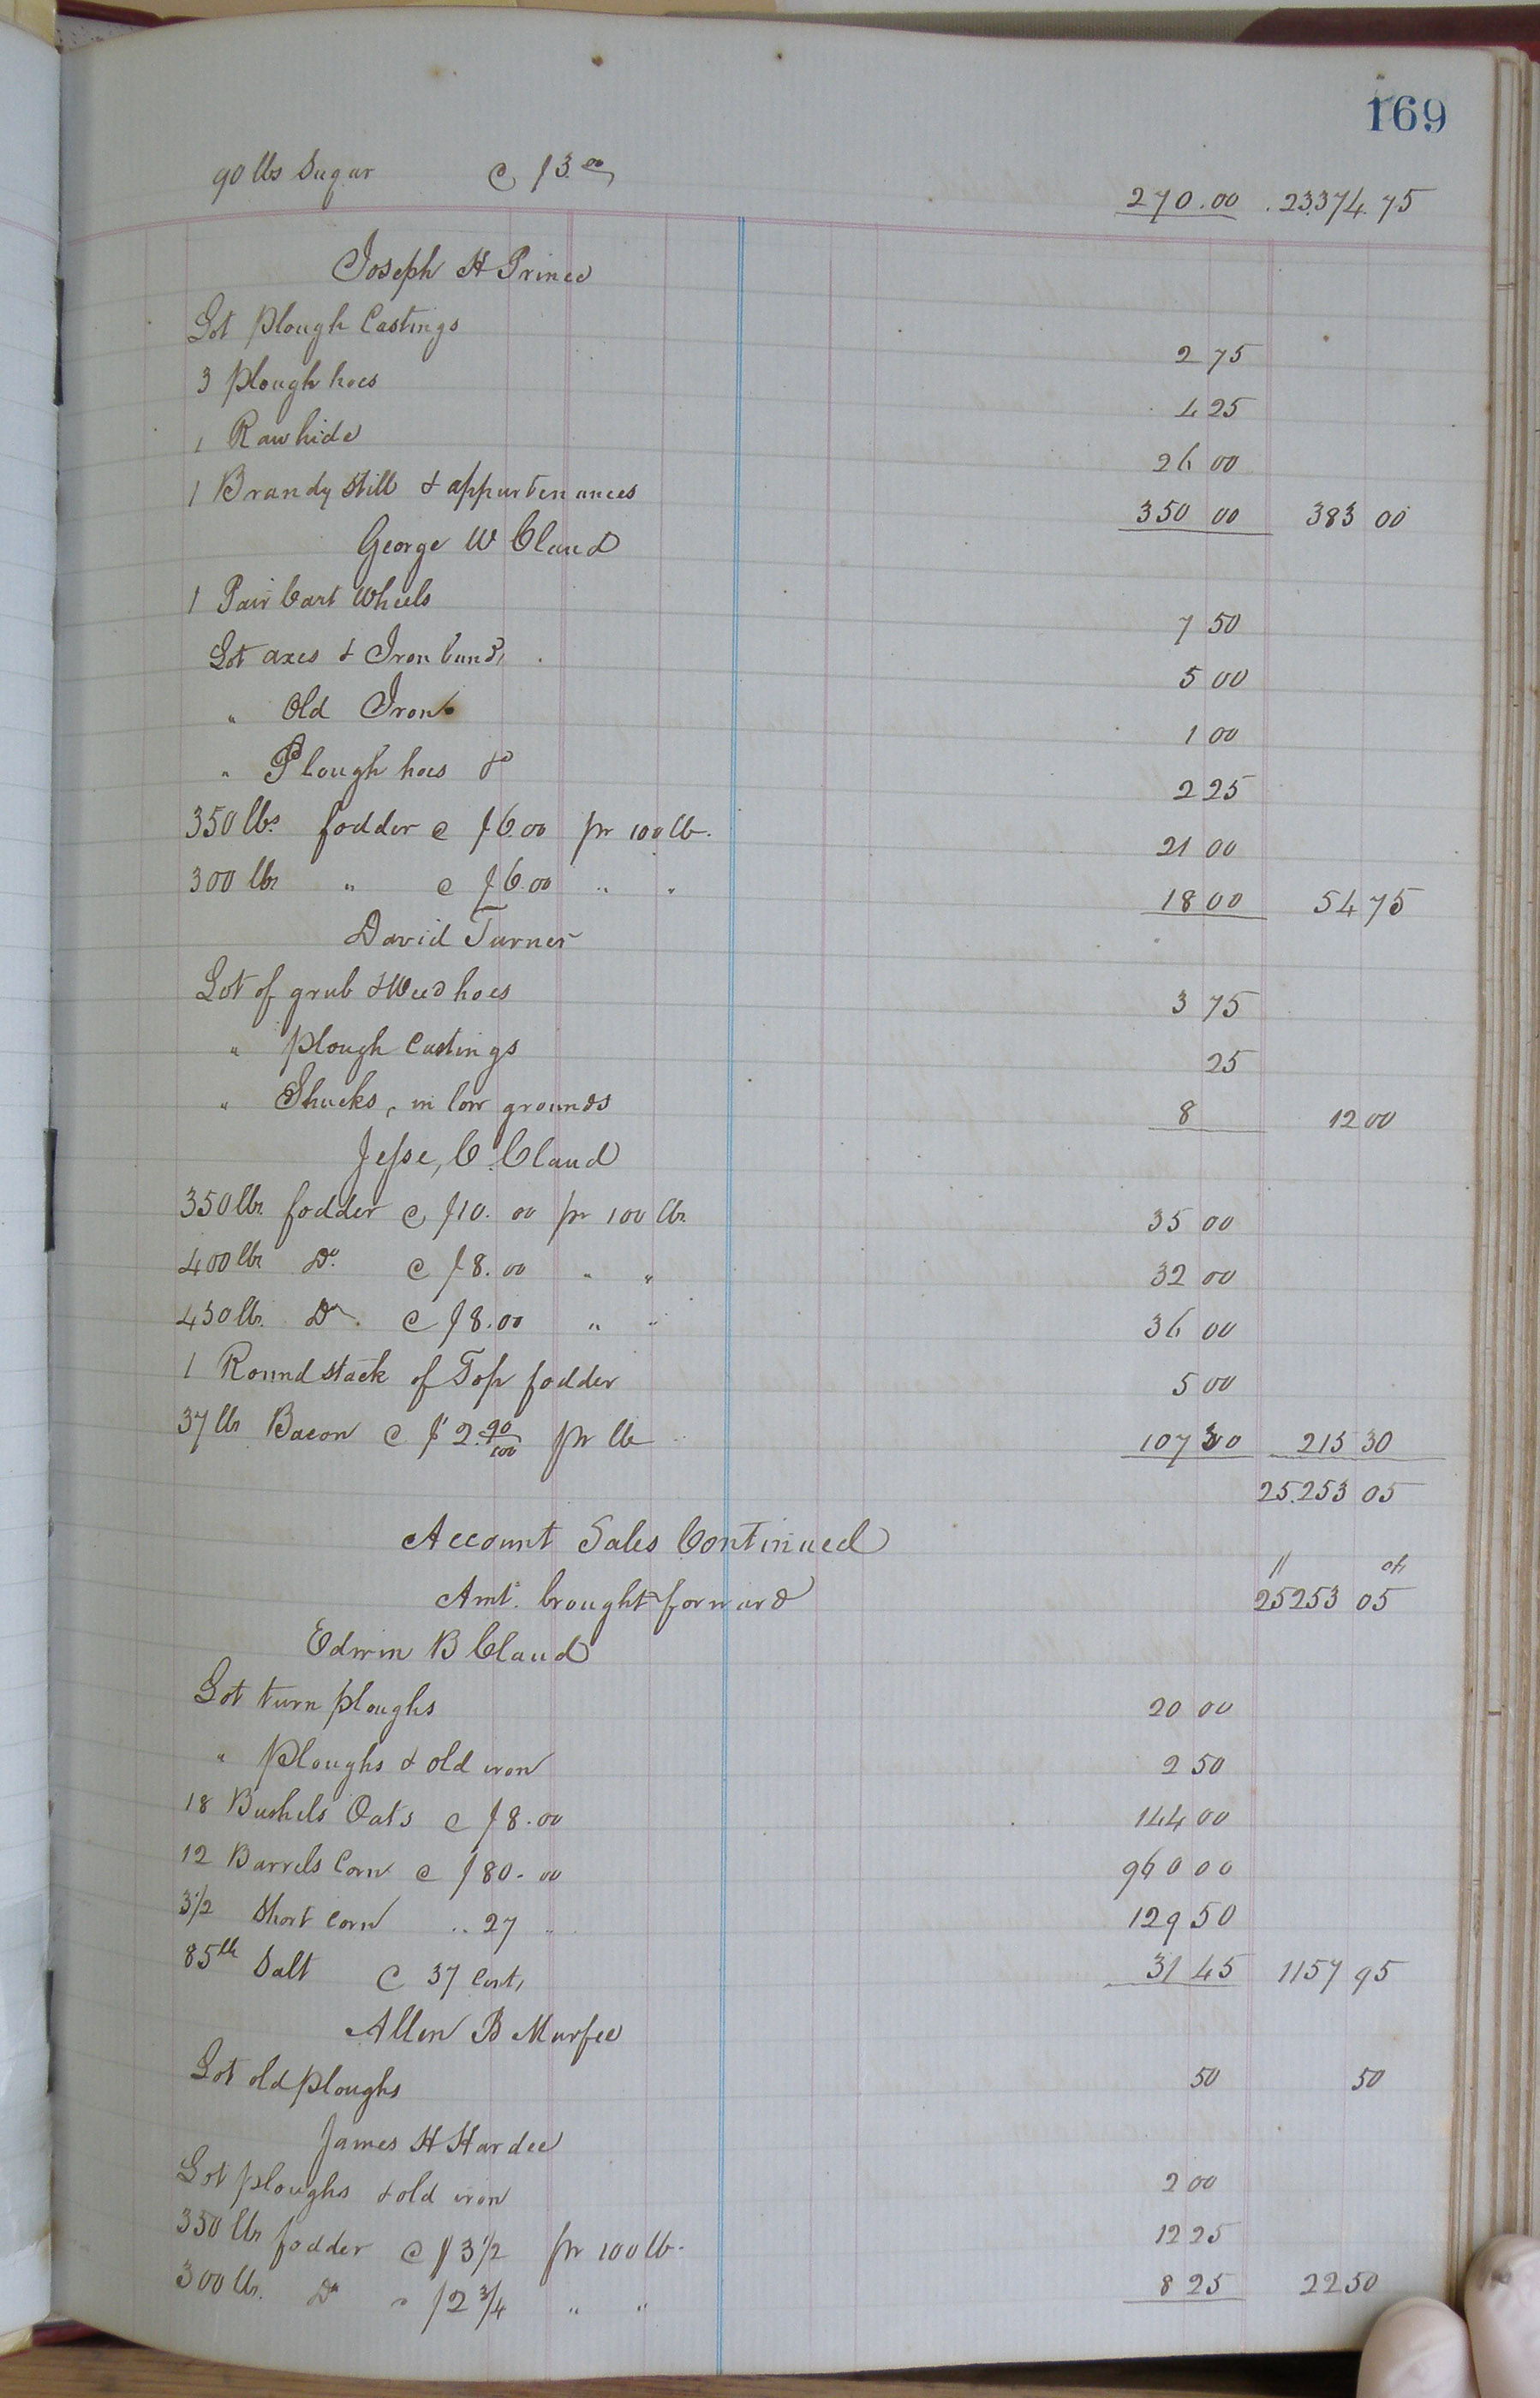 169
90 lbs Sugar @ $3.00 270.00 23.374.75
Joseph H Prince
Lot Plough Castings 2 75
3 Plough hoes 4 25
1 Rawhide 26 00
1 Brandy Still & appurtenances 350 00 383 00
George W Claud
1 Pair Cart Wheels 7 50
Lot axes & Iron band, 5 00
" Old Iron 1 00
" Plough hoes &c 2 25
350 lbs fodder @ $6.00 pr 100 lb. 21 00
300 lbs " @ $6.00 " " 18 00 54 75
David Turner
Lot of grub & Weed hoes 3 75
" Plough Castings 25
" Shucks, in low grounds 8 12 00
Jesse, C. Claud
350 lbs. fodder @ $10.00 pr 100 lbs 35 00
400 lbs Do. @ $8.00 " " 32 00
450 lbs. Do. @ $8.00 " " 36 00
1 Round stack of Top fodder 5 00
37 lbs Bacon @ $2.90/100 pr lb 107 30 215 30
25.253 05
Account Sales Continued
Amt. brought forward 25253 05
Edwin B Claud
Lot turn ploughs 20 00
" Ploughs & old iron 2 50
18 Bushels Oats @ $8.00 144 00
12 Barrels Corn @ $80.00 960 00
3 1/2 Short Corn .. 27 .. 129 50
85 lb Salt @ 37 Cents, 31 45 1157 95
Allen B Murfee
Lot old ploughs 50 50
James H Hardee
Lot ploughs & old iron 2 00
350 lbs fodder @ $3 1/2 pr 100 lb. 12 25
300 lbs. Do " $2 3/4 " " 8 25 22 50